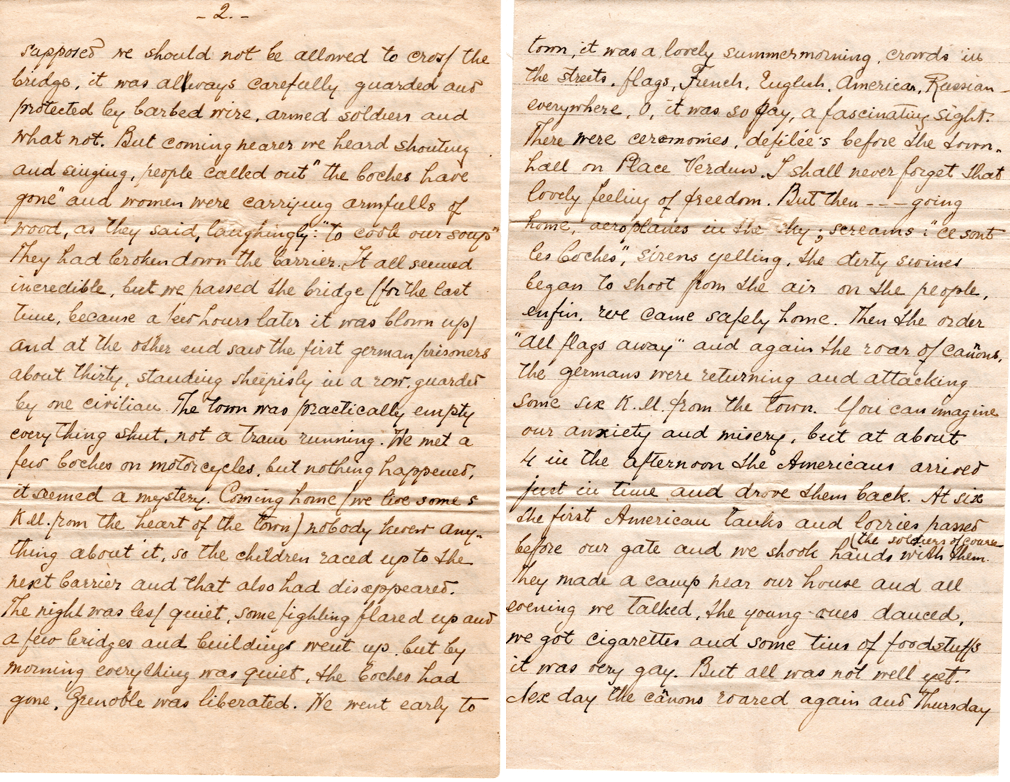 - 2. -
supposed we should not be allowed to cross the
bridge, it was allways carefully guarded and
protected by barbed wire, armed soldiers and
what not. But coming nearer we heard shouting
and singing, people called out "the boches have
gone" and women were carrying armfulls of
wood, as they said, laughingly: "to cook our soup"
They had broken down the barrier. It all seemed
incredible, but we passed the bridge (for the last
time, because a few hours later it was blown up)
and at the other end saw the first german prisoners
about thirty, standing sheepisly in a row, guarded
by one civilian. The town was practically empty
everything shut, not a tram running. We met a
few boches on motorcycles, but nothing happened,
it seemed a mystery. Coming home (we live some 5
K.M. from the heart of the town) nobody knew any-
thing about it, so the children raced up to the
next barrier and that also had disappeared.
The night was less quiet, some fighting flared up and
a few bridges and buildings went up, but by
morning everything was quiet, the boches had
gone, Grenoble was liberated. We went early to
town, it was a lovely summermorning, crowds in
the streets, flags, French, English, American, Russian
everywhere, O, it was so gay, a fascinating sight.
There were ceremonies, défilée's before the town-
hall on Place Verdun. I shall never forget that
lovely feeling of freedom. But then --- going
home, aeroplanes in the sky; screams: "ce sont
les boches", sirens yelling, the dirty swines
began to shoot from the air on the people,
enfin, we came safely home. Then the order
"all flags away" and again the roar of cañons,
the germans were returning and attacking
some six K.M. from the town. You can imagine
our anxiety and misery, but at about
4 in the afternoon the Americans arrived
just in time and drove them back. At six
the first American tanks and lorries passed
before our gate and we shook hands with them. (the soldiers of course
They made a camp near our house and all
evening we talked, the young-ones danced,
we got cigarettes and some tins of foodstuffs
it was very gay. But all was not well yet.
Nex day the cañons roared again and Thursday